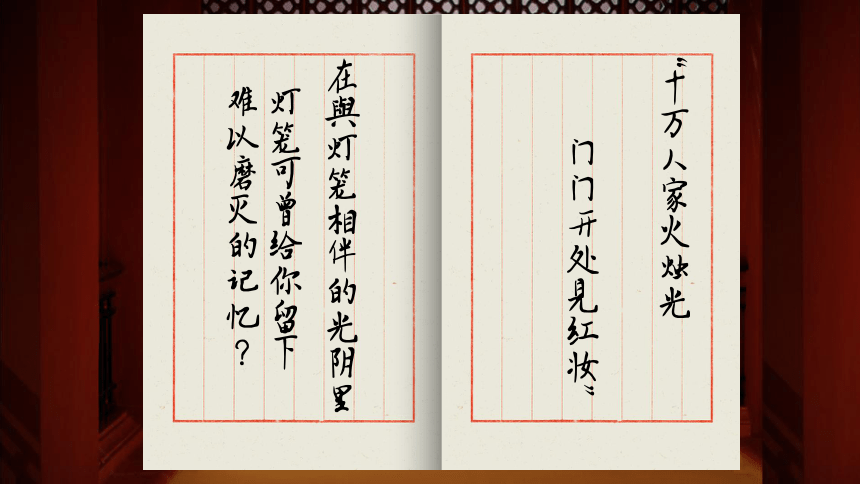 “十万人家火烛光
门门开处见红妆”
在與灯笼相伴的光阴里
灯笼可曾给你留下
难以磨灭的记忆？